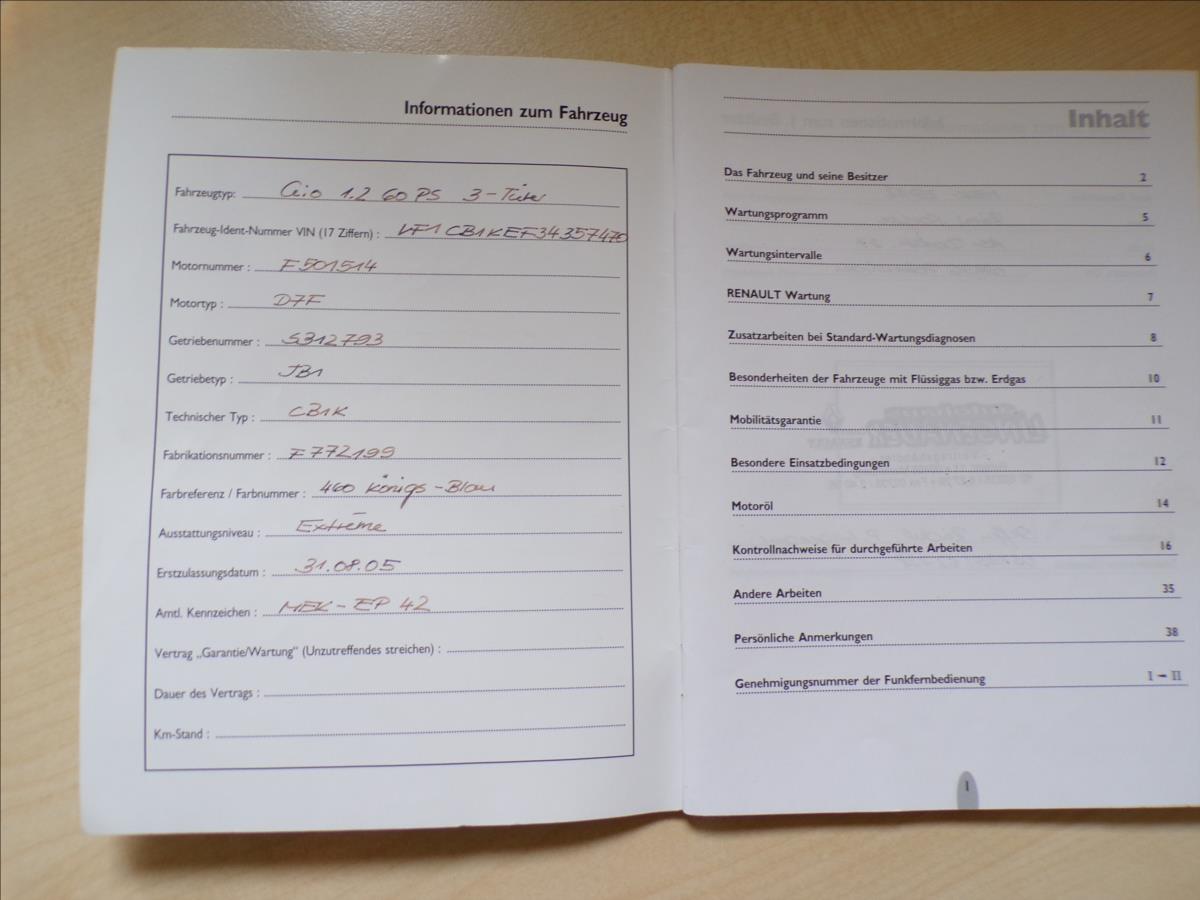 Informationen zum Fahrzeug
Fahrzeugtyp: Clio 1.2 60 PS 3-Türer
Fahrzeug-Ident-Nummer VIN (17 Ziffern) : VF1CB1KEF34357470
Motornummer : F501514
Motortyp : D7F
Getriebenummer : S312793
Getriebetyp : JB1
Technischer Typ : CB1K
Fabrikationsnummer : F772199
Farbreferenz / Farbnummer : 460 Königs-Blau
Ausstattungsniveau : Extrême
Erstzulassungsdatum : 31.08.05
Amtl. Kennzeichen : MEK-EP 42
Vertrag „Garantie/Wartung" (Unzutreffendes streichen) :
Dauer des Vertrags :
Km-Stand :
Inhalt
Das Fahrzeug und seine Besitzer 2
Wartungsprogramm 5
Wartungsintervalle 6
RENAULT Wartung 7
Zusatzarbeiten bei Standard-Wartungsdiagnosen 8
Besonderheiten der Fahrzeuge mit Flüssiggas bzw. Erdgas 10
Mobilitätsgarantie 11
Besondere Einsatzbedingungen 12
Motoröl 14
Kontrollnachweise für durchgeführte Arbeiten 16
Andere Arbeiten 35
Persönliche Anmerkungen 38
Genehmigungsnummer der Funkfernbedienung I – II
1